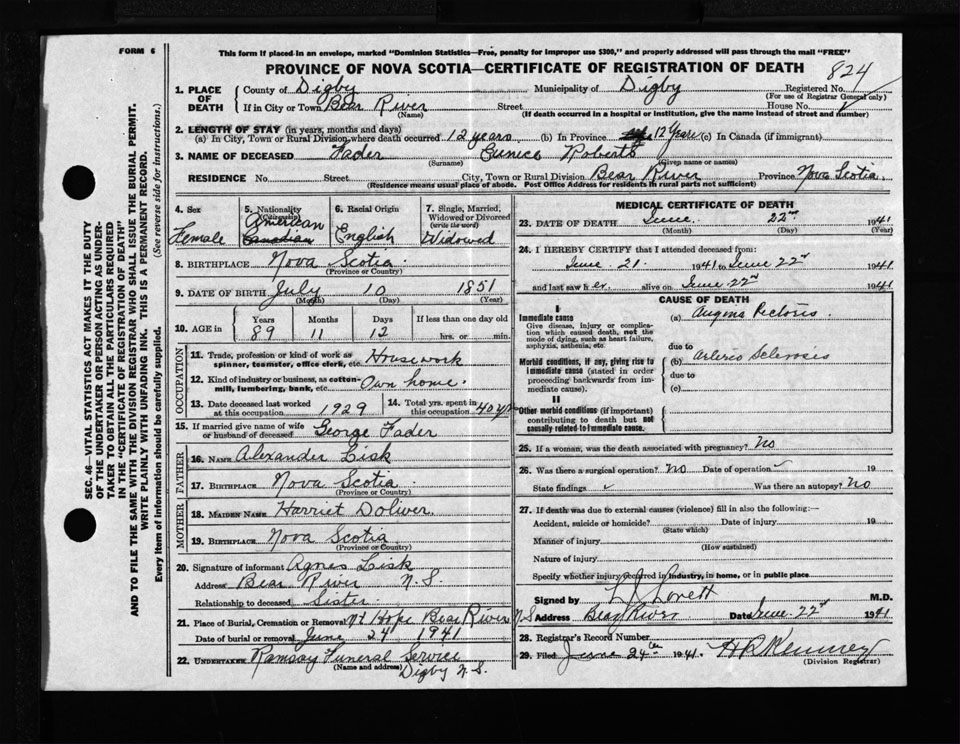 FORM 6
This form if placed in an envelope, marked "Dominion Statistics—Free, penalty for improper use $300," and properly addressed will pass through the mail "FREE"
PROVINCE OF NOVA SCOTIA—CERTIFICATE OF REGISTRATION OF DEATH
824
1. PLACE OF DEATH
County of Digby Municipality of Digby Registered No.
(For use of Registrar General only)
If in City or Town Bear River Street House No.
(Name) (If death occurred in a hospital or institution, give the name instead of street and number)
2. LENGTH OF STAY (in years, months and days)
(a) In City, Town or Rural Division where death occurred 12 years (b) In Province 12 Years (c) In Canada (if immigrant)
3. NAME OF DECEASED Fader Eunice Roberts
(Surname) (Given name or names)
RESIDENCE No. Street City, Town or Rural Division Bear River Province Nova Scotia
(Residence means usual place of abode. Post Office Address for residents in rural parts not sufficient)
4. Sex Female
5. Nationality (Citizenship) American Canadian
6. Racial Origin English
7. Single, Married, Widowed or Divorced (write the word) Widowed
8. BIRTHPLACE Nova Scotia
(Province or Country)
9. DATE OF BIRTH July 10 1851
(Month) (Day) (Year)
10. AGE in Years Months Days If less than one day old
89 11 12 hrs. or min.
OCCUPATION
11. Trade, profession or kind of work as spinner, teamster, office clerk, etc. Housework
12. Kind of industry or business, as cotton-mill, lumbering, bank, etc. Own home.
13. Date deceased last worked at this occupation 1929
14. Total yrs. spent in this occupation 40 yrs
15. If married give name of wife or husband of deceased George Fader
FATHER
16. NAME Alexander Lisk
17. BIRTHPLACE Nova Scotia
(Province or Country)
MOTHER
18. MAIDEN NAME Harriet Doliver
19. BIRTHPLACE Nova Scotia
(Province or Country)
20. Signature of informant Agnes Lisk
Address Bear River N.S.
Relationship to deceased Sister
21. Place of Burial, Cremation or Removal Mt Hope Bear River N.S
Date of burial or removal June 24 1941
22. UNDERTAKER Ramsay Funeral Service
(Name and address) Digby N.S.
MEDICAL CERTIFICATE OF DEATH
23. DATE OF DEATH June 22nd 1941
(Month) (Day) (Year)
24. I HEREBY CERTIFY that I attended deceased from:
June 21. 1941 to June 22nd 1941
and last saw her alive on June 22nd 1941
CAUSE OF DEATH
I
Immediate cause
Give disease, injury or complication which caused death, not the mode of dying, such as heart failure, asphyxia, asthenia, etc.
(a) Angina Pectoris
due to
Morbid conditions, if any, giving rise to immediate cause (stated in order proceeding backwards from immediate cause).
(b) Arterio Sclerosis
due to
(c)
II
Other morbid conditions (if important) contributing to death but not causally related to immediate cause.
25. If a woman, was the death associated with pregnancy? No
26. Was there a surgical operation? No Date of operation 19
State findings Was there an autopsy? No
27. If death was due to external causes (violence) fill in also the following:—
Accident, suicide or homicide? Date of injury 19
(State which)
Manner of injury
(How sustained)
Nature of injury
Specify whether injury occurred in industry, in home, or in public place
Signed by Lovett M.D.
Address Bear River Date June 22nd 1941
28. Registrar's Record Number
29. Filed June 24th 1941. H R Kenney
(Division Registrar)
SEC. 46—VITAL STATISTICS ACT MAKES IT THE DUTY
OF THE UNDERTAKER OR PERSON ACTING AS UNDER-
TAKER TO OBTAIN ALL THE PARTICULARS REQUIRED
IN THE "CERTIFICATE OF REGISTRATION OF DEATH"
AND TO FILE THE SAME WITH THE DIVISION REGISTRAR WHO SHALL ISSUE THE BURIAL PERMIT.
WRITE PLAINLY WITH UNFADING INK. THIS IS A PERMANENT RECORD.
Every item of information should be carefully supplied. (See reverse side for instructions.)